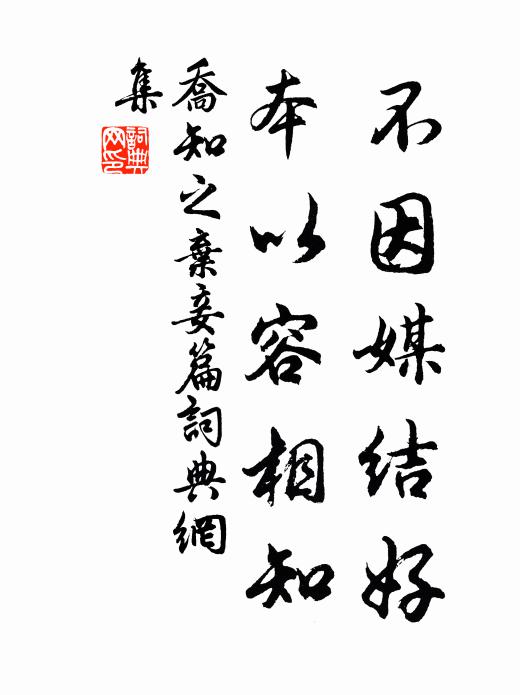 不因媒结好
本以容相知
喬知之棄妾篇詞典網
集
詞典
网印